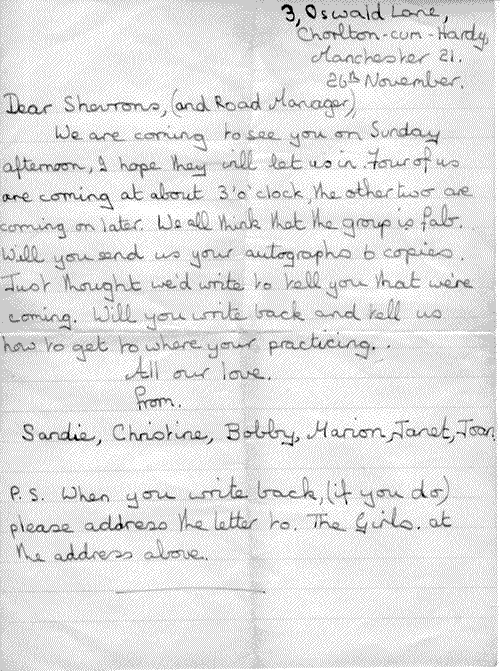 3, Oswald Lane,
Chorlton-cum-Hardy,
Manchester 21.
26th November.
Dear Shevrons, (and Road Manager),
We are coming to see you on Sunday
afternoon, I hope they will let us in. Four of us
are coming at about 3 'o' clock, the other two are
coming on later. We all think that the group is fab.
Will you send us your autographs 6 copies.
Just thought we'd write to tell you that we're
coming. Will you write back and tell us
how to get to where your practicing..
All our love.
from.
Sandie, Christine, Bobby, Marion, Janet, Joan.
P.S. When you write back, (if you do)
please address the letter to. The Girls. at
the address above.